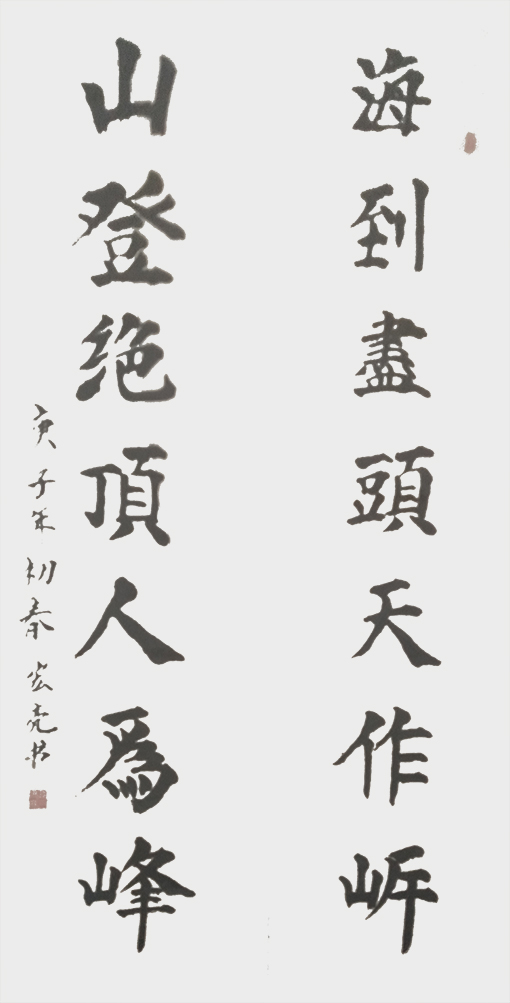 海到盡頭天作岸
山登绝頂人為峰
庚子年初春宏亮书